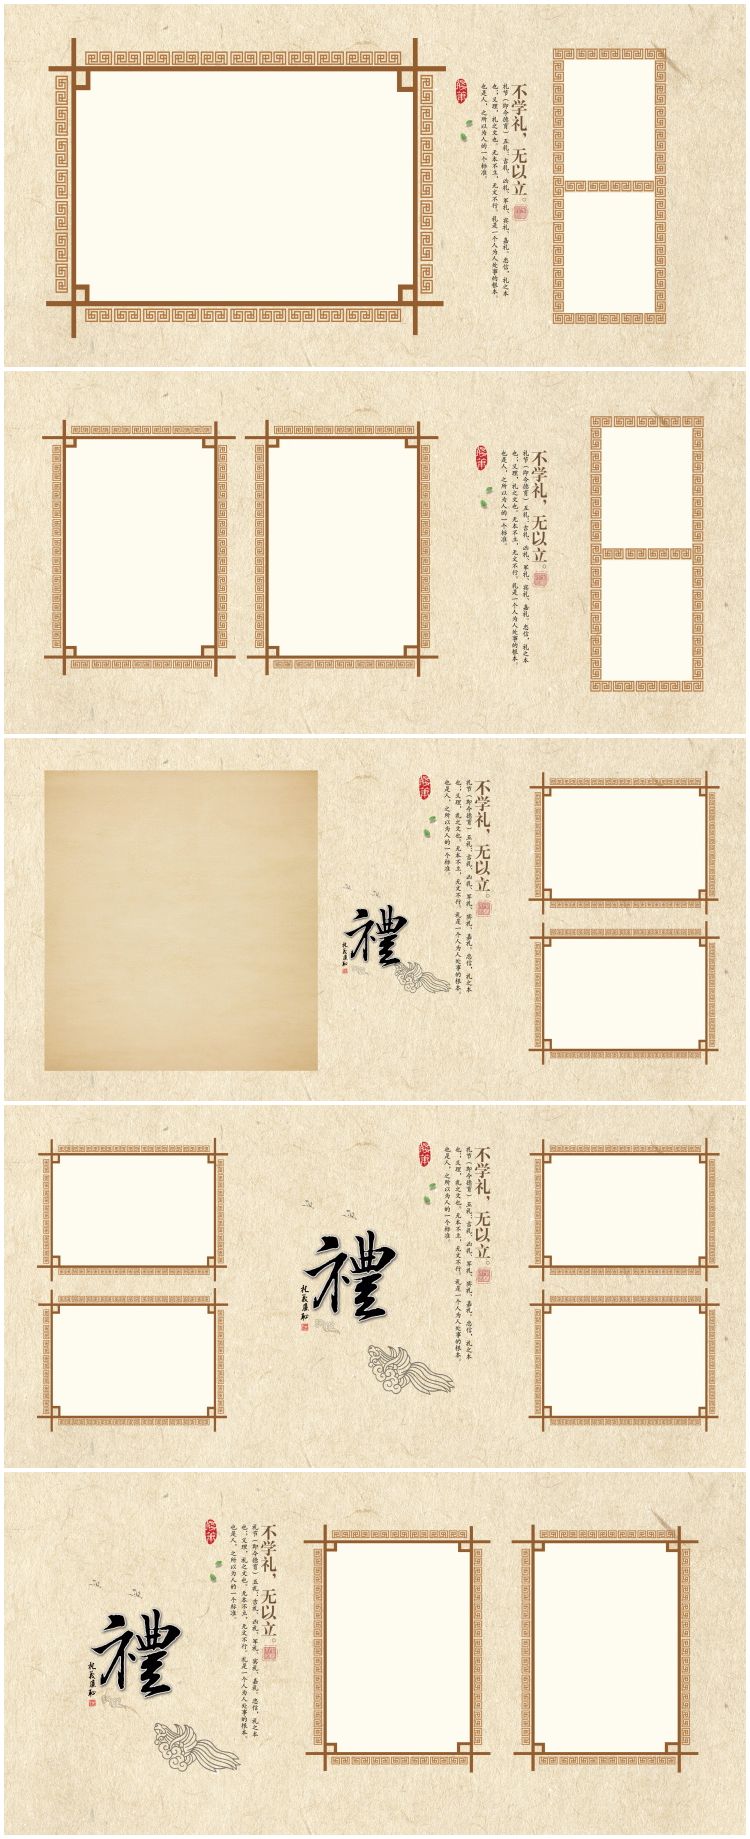 不学礼，无以立。
礼节（即今德育）五礼：吉礼、凶礼、军礼、宾礼、嘉礼。忠信，礼之本
也；义理，礼之文也。无本不立，无文不行。礼是一个人为人处事的根本。
也是人，之所以为人的一个标准。
不学礼，无以立。
礼节（即今德育）五礼：吉礼、凶礼、军礼、宾礼、嘉礼。忠信，礼之本
也；义理，礼之文也。无本不立，无文不行。礼是一个人为人处事的根本。
也是人，之所以为人的一个标准。
不学礼，无以立。
礼节（即今德育）五礼：吉礼、凶礼、军礼、宾礼、嘉礼。忠信，礼之本
也；义理，礼之文也。无本不立，无文不行。礼是一个人为人处事的根本。
也是人，之所以为人的一个标准。
禮
礼义廉耻
不学礼，无以立。
礼节（即今德育）五礼：吉礼、凶礼、军礼、宾礼、嘉礼。忠信，礼之本
也；义理，礼之文也。无本不立，无文不行。礼是一个人为人处事的根本。
也是人，之所以为人的一个标准。
禮
礼义廉耻
不学礼，无以立。
礼节（即今德育）五礼：吉礼、凶礼、军礼、宾礼、嘉礼。忠信，礼之本
也；义理，礼之文也。无本不立，无文不行。礼是一个人为人处事的根本。
也是人，之所以为人的一个标准。
禮
礼义廉耻